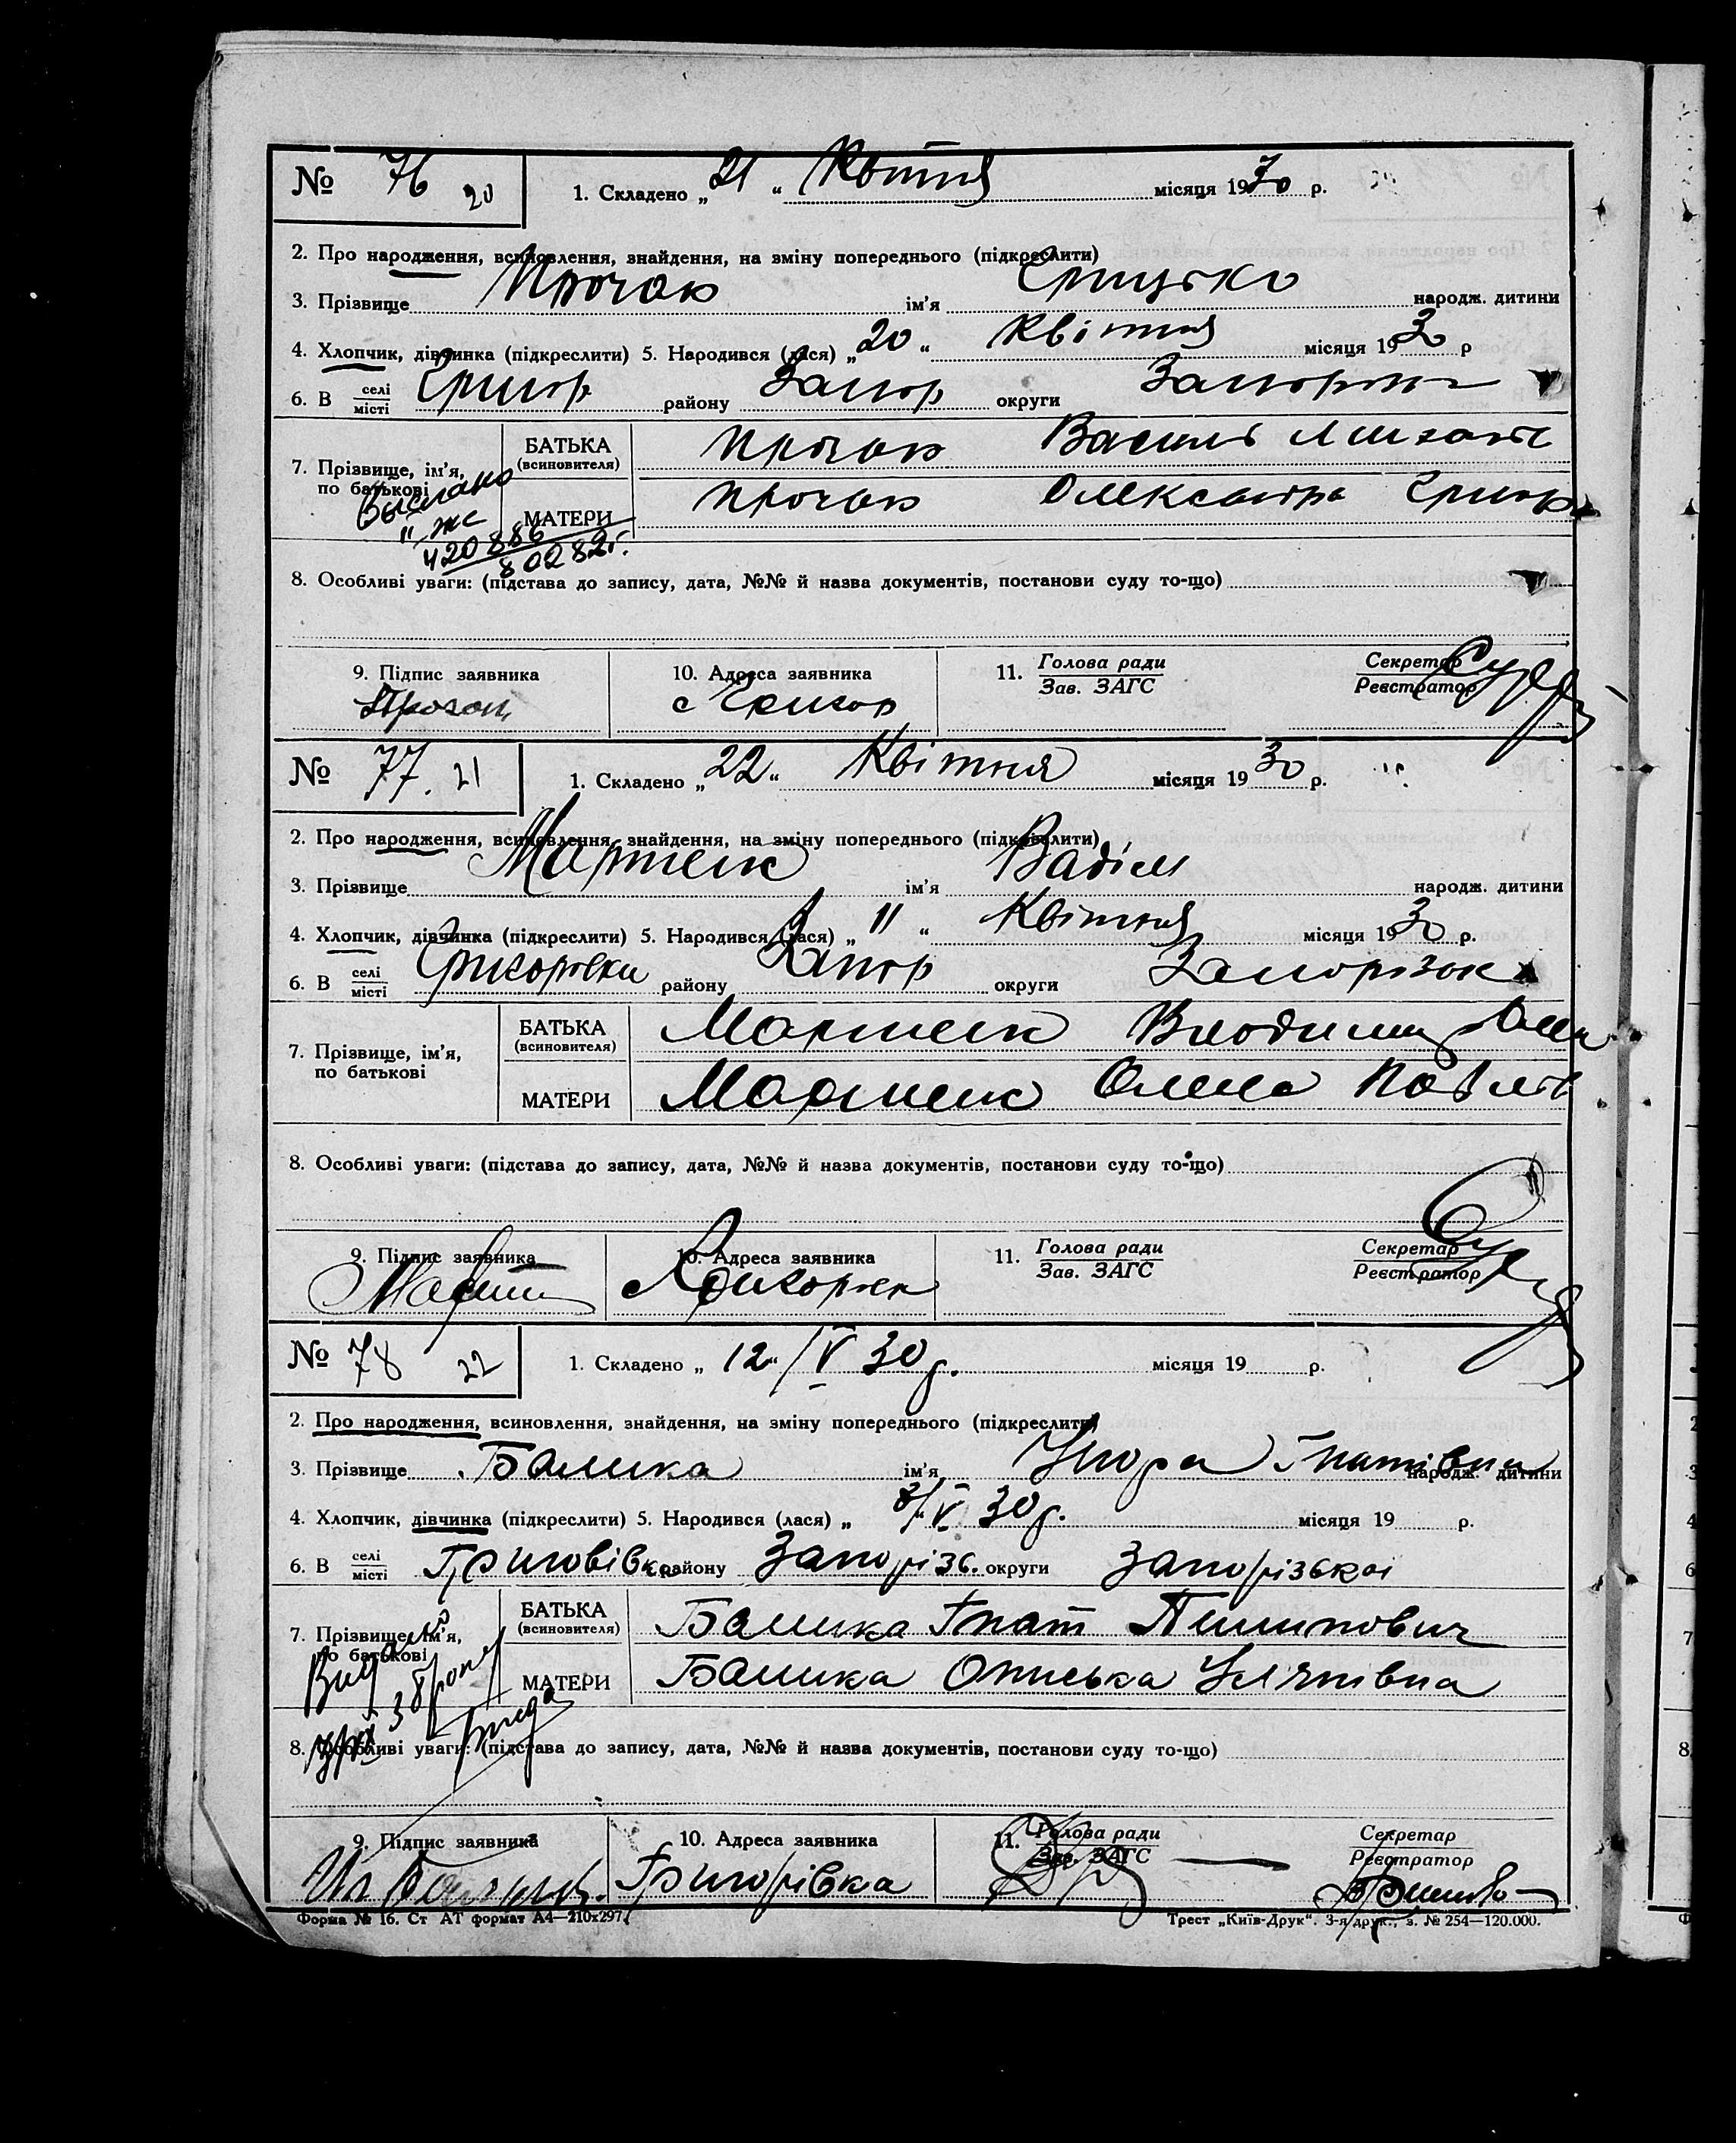 № 76 20 1. Складено „ 21 “ Квітня місяця 1930 р.
2. Про народження, всиновлення, знайдення, на зміну попереднього (підкреслити)
3. Прізвище Прочак ім’я Грицько народж. дитини
4. Хлопчик, дівчинка (підкреслити) 5. Народився (лася) „ 20 “ Квітня місяця 1930 р
6. В селі/місті Григор району Запор округи
7. Прізвище, ім’я, по батькові БАТЬКА (всиновителя) Прочак Василь
МАТЕРИ Прочак Олександра Григор
420886
8. Особливі уваги: (підстава до запису, дата, №№ й назва документів, постанови суду то-що)
9. Підпис заявника 10. Адреса заявника 11. Голова ради Секретар
Зав. ЗАГС Реєстратор
с Григор
№ 77. 21 1. Складено „ 22 “ Квітня місяця 1930 р.
2. Про народження, всиновлення, знайдення, на зміну попереднього (підкреслити)
3. Прізвище ім’я Вадім народж. дитини
4. Хлопчик, дівчинка (підкреслити) 5. Народився (лася) „ 11 “ Квітня місяця 1930 р.
6. В селі/місті Григоровки району Запор округи Запорізок
7. Прізвище, ім’я, по батькові БАТЬКА (всиновителя) Володимир
МАТЕРИ Олена Павлів
8. Особливі уваги: (підстава до запису, дата, №№ й назва документів, постанови суду то-що)
9. Підпис заявника 10. Адреса заявника 11. Голова ради Секретар
Зав. ЗАГС Реєстратор
№ 78 22 1. Складено „ 12 “ /V 30 р. місяця 19 р.
2. Про народження, всиновлення, знайдення, на зміну попереднього (підкреслити)
3. Прізвище Балика ім’я Гнатівна народж. дитини
4. Хлопчик, дівчинка (підкреслити) 5. Народився (лася) „ 8/V 30 р. місяця 19 р.
6. В селі/місті району Запорізь. округи Запорізької
7. Прізвище, ім’я, по батькові БАТЬКА (всиновителя) Балика Гнат Пилипович
МАТЕРИ Балика Ониська Улянівна
8. Особливі уваги: (підстава до запису, дата, №№ й назва документів, постанови суду то-що)
9. Підпис заявника 10. Адреса заявника 11. Голова ради Секретар
Зав. ЗАГС Реєстратор
Григорівка
Форма № 16. Ст АТ формат А4—210х297. Трест „Київ-Друк“. 3-я друк., з. № 254—120.000.